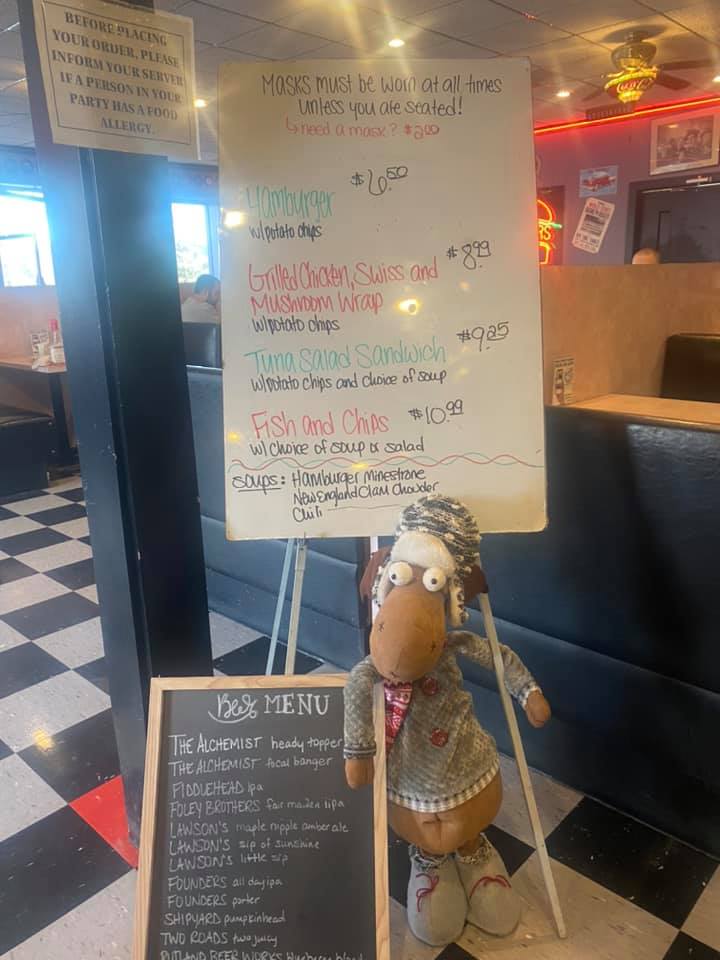 BEFORE PLACING
YOUR ORDER, PLEASE
INFORM YOUR SERVER
IF A PERSON IN YOUR
PARTY HAS A FOOD
ALLERGY.
Masks must be worn at all times
unless you are seated!
↳ need a mask? $2.00
Hamburger $6.50
w/potato chips
Grilled Chicken, Swiss and $8.99
Mushroom Wrap
w/potato chips
Tuna Salad Sandwich $9.25
w/potato chips and choice of soup
Fish and Chips $10.99
w/ choice of soup or salad
Soups: Hamburger Minestrone
New England Clam Chowder
Chili
Beer MENU
THE ALCHEMIST heady topper
THE ALCHEMIST focal banger
FIDDLEHEAD ipa
FOLEY BROTHERS fair maiden iipa
LAWSON'S maple nipple amber ale
LAWSON'S sip of sunshine
LAWSON'S little sip
FOUNDERS all day ipa
FOUNDERS porter
SHIPYARD pumpkinhead
TWO ROADS two juicy
RUTLAND BEER WORKS blueberry blond